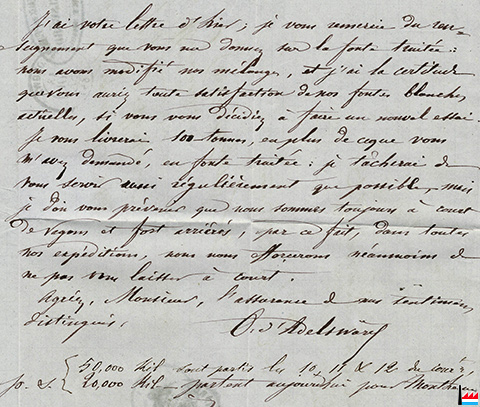 J'ai votre lettre d'hier; je vous remercie du ren-
seignement que vous me donnez sur la fonte traitée:
nous avons modifié nos mélanges, et j'ai la certitude
que vous aurez toute satisfaction de nos fontes blanches
actuelles, si vous vous décidez à faire un nouvel essai.
Je vous livrerai 100 tonnes, en plus de ce que vous
m'avez demandé, en fonte traitée: je tâcherai de
vous servir aussi régulièrement que possible, mais
je dois vous prévenir que nous sommes toujours à court
de wagons et fort arriérés, par ce fait, dans toutes
nos expéditions, nous nous efforcerons néanmoins de
ne pas vous laisser à court.
Agréez, Monsieur, l'assurance de mes sentiments
distingués.
O. d'Adelswärd
50,000 Kil sont partis les 10, 11, & 12 du cour,
p. s. 20,000 Kil partent aujourd'hui pour